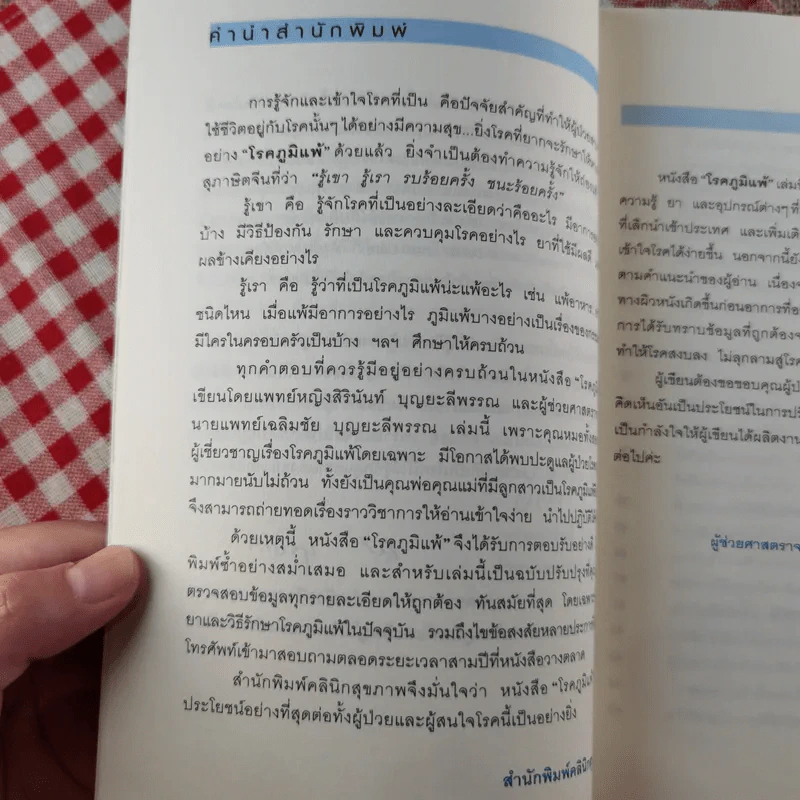 คำนำสำนักพิมพ์
การรู้จักและเข้าใจโรคที่เป็น คือปัจจัยสำคัญที่ทำให้ผู้ป่วย
ใช้ชีวิตอยู่กับโรคนั้นๆ ได้อย่างมีความสุข...ยิ่งโรคที่ยากจะรักษา
อย่าง “โรคภูมิแพ้” ด้วยแล้ว ยิ่งจำเป็นต้องทำความรู้จักให้
สุภาษิตจีนที่ว่า “รู้เขา รู้เรา รบร้อยครั้ง ชนะร้อยครั้ง”
รู้เขา คือ รู้จักโรคที่เป็นอย่างละเอียดว่าคืออะไร มีอาการ
บ้าง มีวิธีป้องกัน รักษา และควบคุมโรคอย่างไร ยาที่ใช้มีผลดี
ผลข้างเคียงอย่างไร
รู้เรา คือ รู้ว่าที่เป็นโรคภูมิแพ้น่ะแพ้อะไร เช่น แพ้อาหาร
ชนิดไหน เมื่อแพ้มีอาการอย่างไร ภูมิแพ้บางอย่างเป็นเรื่องของ
มีใครในครอบครัวเป็นบ้าง ฯลฯ ศึกษาให้ครบถ้วน
ทุกคำตอบที่ควรรู้มีอยู่อย่างครบถ้วนในหนังสือ “โรคภูมิแพ้
เขียนโดยแพทย์หญิงสิรินันท์ บุญยะลีพรรณ และผู้ช่วยศาสตรา
นายแพทย์เฉลิมชัย บุญยะลีพรรณ เล่มนี้ เพราะคุณหมอทั้ง
ผู้เชี่ยวชาญเรื่องโรคภูมิแพ้โดยเฉพาะ มีโอกาสได้พบปะดูแลผู้ป่วย
มากมายนับไม่ถ้วน ทั้งยังเป็นคุณพ่อคุณแม่ที่มีลูกสาวเป็นโรคภูมิแพ้
จึงสามารถถ่ายทอดเรื่องราววิชาการให้อ่านเข้าใจง่าย นำไปปฏิบัติ
ด้วยเหตุนี้ หนังสือ “โรคภูมิแพ้” จึงได้รับการตอบรับอย่างดี
พิมพ์ซ้ำอย่างสม่ำเสมอ และสำหรับเล่มนี้เป็นฉบับปรับปรุง
ตรวจสอบข้อมูลทุกรายละเอียดให้ถูกต้อง ทันสมัยที่สุด โดยเฉพาะ
ยาและวิธีรักษาโรคภูมิแพ้ในปัจจุบัน รวมถึงไขข้อสงสัยหลายประการ
โทรศัพท์เข้ามาสอบถามตลอดระยะเวลาสามปีที่หนังสือวางตลาด
สำนักพิมพ์คลินิกสุขภาพจึงมั่นใจว่า หนังสือ “โรคภูมิแพ้
ประโยชน์อย่างที่สุดต่อทั้งผู้ป่วยและผู้สนใจโรคนี้เป็นอย่างยิ่ง
สำนักพิมพ์คลินิก
หนังสือ “โรคภูมิแพ้” เล่ม
ความรู้ ยา และอุปกรณ์ต่างๆ ที่
ที่เลิกนำเข้าประเทศ และเพิ่มเติ
เข้าใจโรคได้ง่ายขึ้น นอกจากนี้ยัง
ตามคำแนะนำของผู้อ่าน เนื่องจ
ทางผิวหนังเกิดขึ้นก่อนอาการที่
การได้รับทราบข้อมูลที่ถูกต้องจ
ทำให้โรคสงบลง ไม่ลุกลามสู่โรค
ผู้เขียนต้องขอขอบคุณผู้ป
คิดเห็นอันเป็นประโยชน์ในการปรั
เป็นกำลังใจให้ผู้เขียนได้ผลิตงาน
ต่อไปค่ะ
ผู้ช่วยศาสตราจ